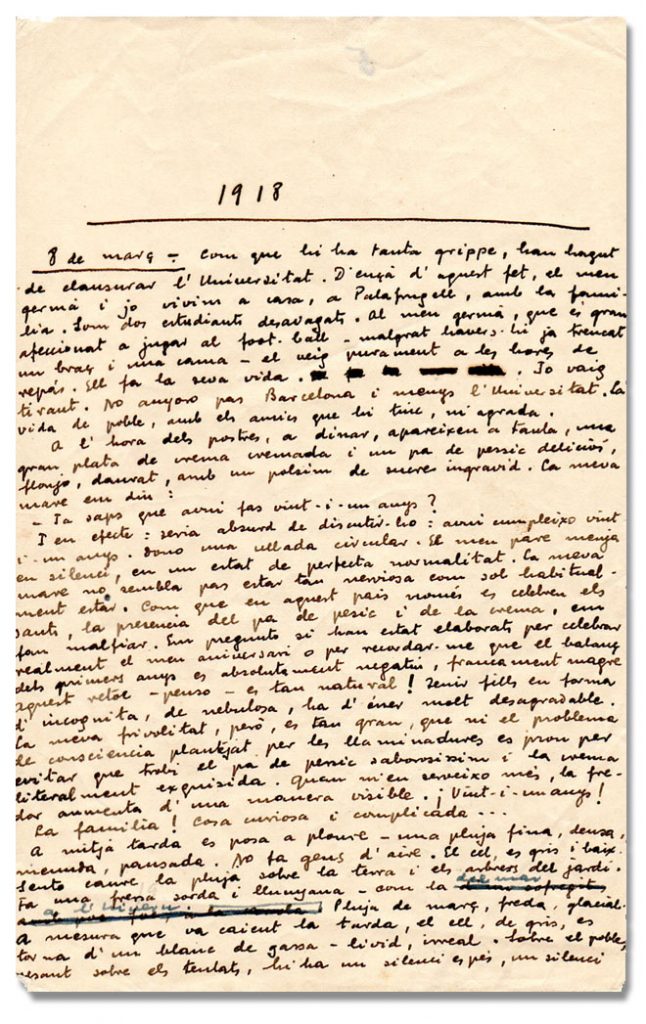 1918
8 de març — Com que hi ha tanta grippe, han hagut
de clausurar l'Universitat. D'ençà d'aquest fet, el meu
germà i jo vivim a casa, a Palafrugell, amb la fami-
lia. Som dos estudiants desvagats. Al meu germà, que és gran
afeccionat a jugar al foot-ball – malgrat havers-hi ja trencat
un braç i una cama – el veig purament a les hores de
repás. Ell fa la seva vida. Jo vaig
tirant. No anyoro pas Barcelona i menys l'Universitat. La
vida de poble, amb els amics que hi tinc, m'agrada.
A l'hora dels postres, a dinar, apareixen a taula, una
gran plata de crema cremada i un pa de pessic deliciós,
flonjo, daurat, amb un polsim de sucre ingravid. La meva
mare em diu:
– Ja saps que avui fas vint-i-un anys?
I en efecte: seria absurd de discutir-ho: avui cumpleixo vint
i-un anys. Dono una ullada circular. El meu pare menja
en silenci, en un estat de perfecta normalitat. La meva
mare no sembla pas estar tan nerviosa com sol habitual-
ment estar. Com que en aquest país només es celebren els
sants, la presencia del pa de pesic i de la crema, em
fan malfiar. Em pregunto si han estat elaborats per celebrar
realment el meu aniversari o per recordar-me que el balanç
dels primers anys es absolutament negatiu, francament magre
aquest retoc – penso – es tan natural! Tenir fills en forma
d'incognita, de nebulosa, ha d'ésser molt desagradable.
La meva frivolitat, però, es tan gran, que ni el problema
de consciencia plantejat per les llaminadures es prou per
evitar que trobi el pa de pessic saborosissim i la crema
literalment exquisida. Quan m'en serveixo més, la fre-
dor aumenta d'una manera visible. ¡Vint-i-un anys!
La familia! Cosa curiosa i complicada...
A mitjà tarda es posa a ploure – una pluja fina, densa,
menuda, pausada. No fa gens d'aire. El cel, es gris i baix.
Sento caure la pluja sobre la terra i els arbres del jardí.
Fa una fressa sorda i llunyana – com la del mar
a l'hivern. Pluja de març, freda, glacial.
A mesura que va caient la tarda, el cel, de gris, es
torna d'un blanc de gassa – livid, irreal. Sobre el poble,
pesant sobre els teulats, hi ha un silenci espés, un silenci